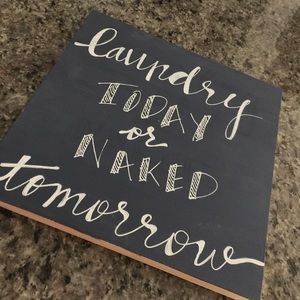 laundry
TODAY
or
NAKED
tomorrow